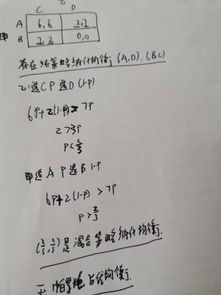 乙
C D
甲 A 6,6 2,7
B 7,2 0,0
存在纯策略纳什均衡 (A,D),(B,C)
乙选C P 选D (1-P)
6P+2(1-P) > 7P
2 > 3P
P < 2/3
甲选 A P 选B 1-P
6P+2(1-P) > 7P
P > 2/3
(2/3, 2/3) 是混合策略纳什均衡
占优均衡